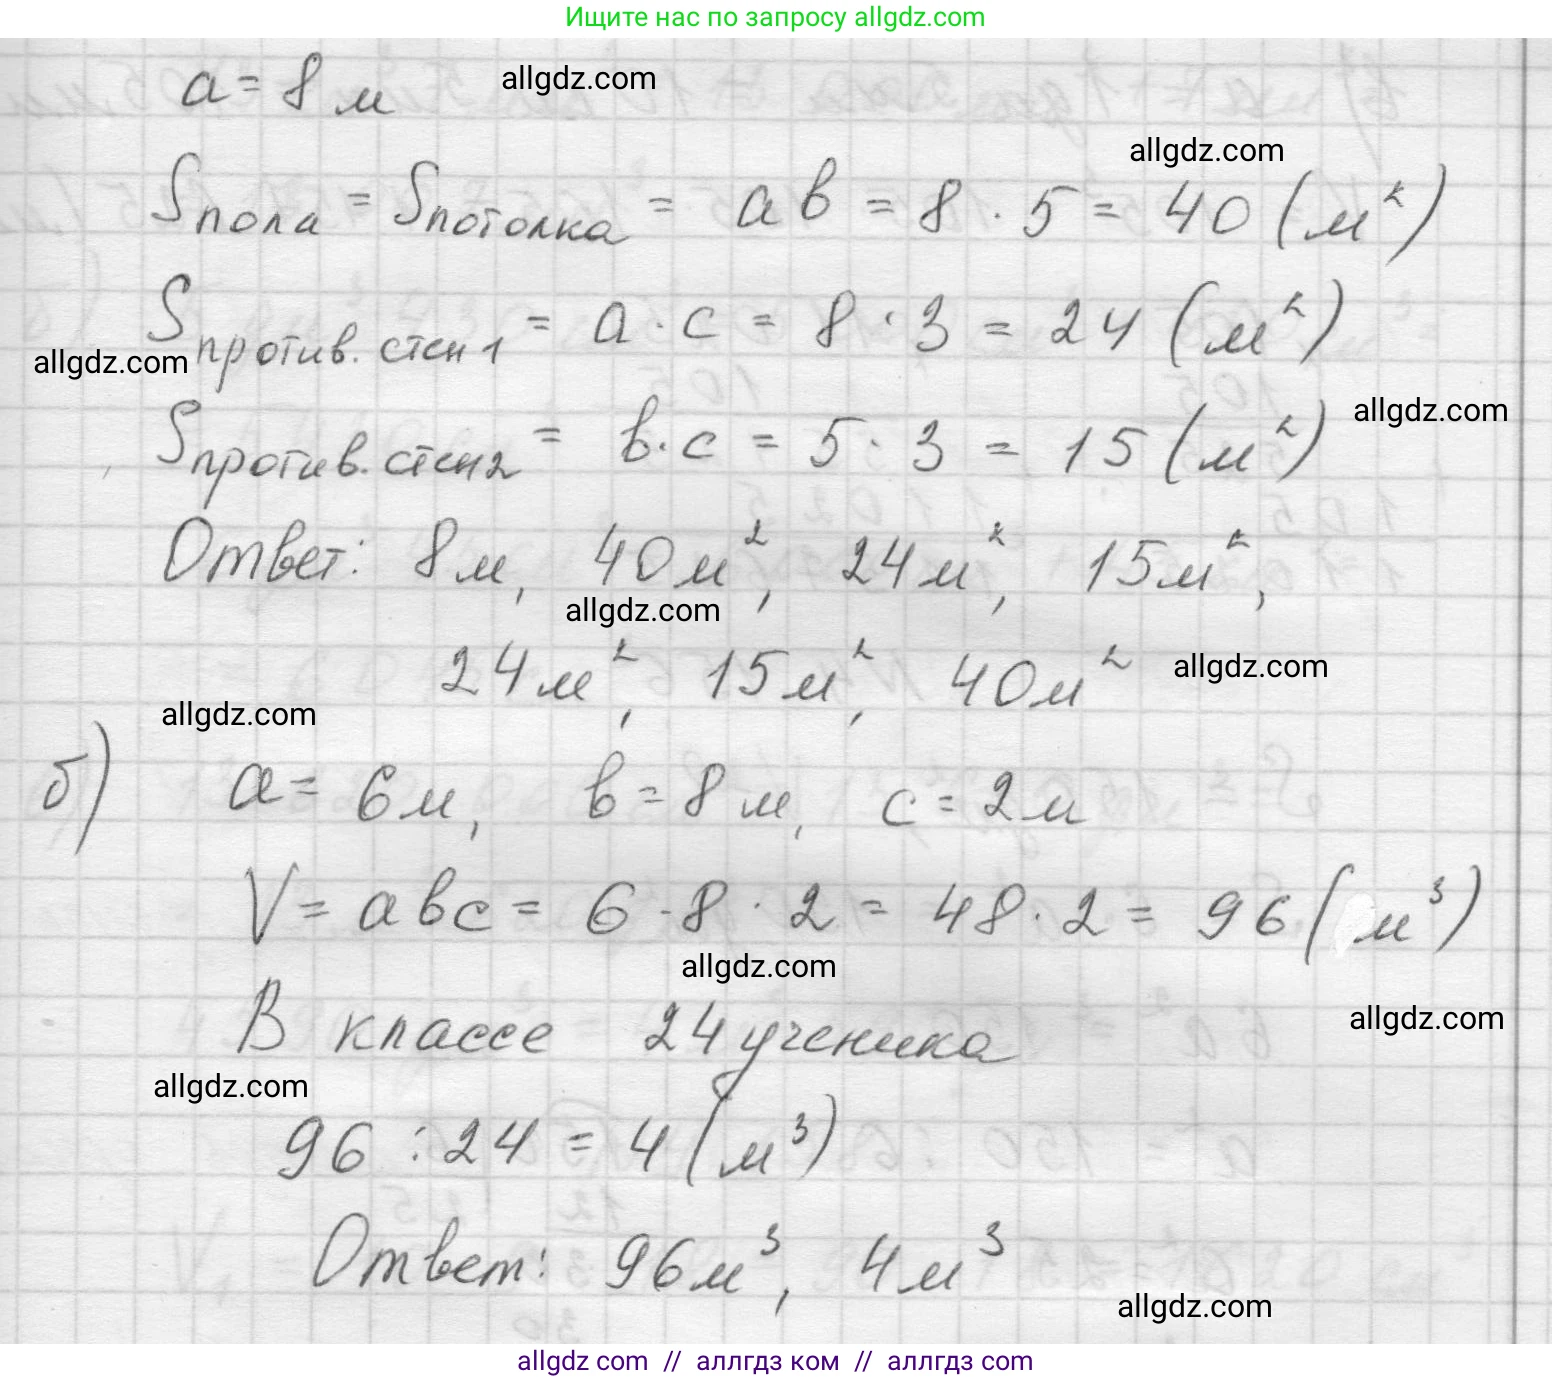 Ищите нас по запросу allgdz.com
a = 8 м
allgdz.com
allgdz.com
Sпола = Sпотолка = ab = 8 · 5 = 40 (м²)
Sпротив. стен 1 = a · c = 8 · 3 = 24 (м²)
allgdz.com
allgdz.com
Sпротив. стен 2 = b · c = 5 · 3 = 15 (м²)
Ответ: 8 м, 40 м², 24 м², 15 м²,
allgdz.com
24 м², 15 м², 40 м²
allgdz.com
allgdz.com
б) a = 6 м, b = 8 м, c = 2 м
V = abc = 6 · 8 · 2 = 48 · 2 = 96 (м³)
allgdz.com
allgdz.com
В классе 24 ученика
allgdz.com
96 : 24 = 4 (м³)
Ответ: 96 м³, 4 м³
allgdz.com
allgdz com // аллгдз ком // аллгдз com